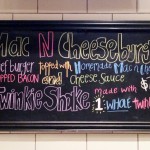 Mac N Cheeseburg
ef burger topped with Homemade Mac n Che
OPPED BACON and Cheese Sauce
Twinkie Shake made with
1 whole twin